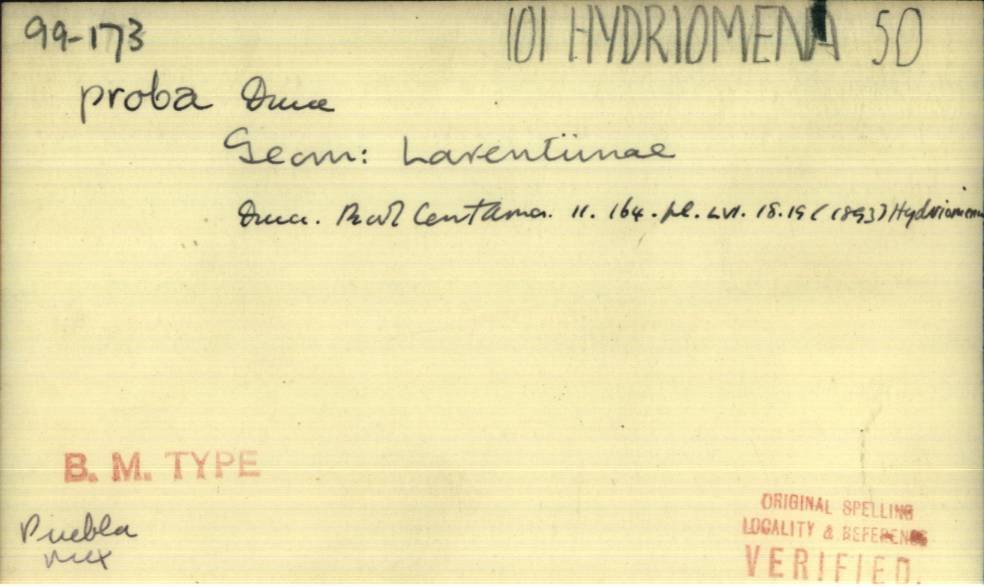 99-173 101 HYDRIOMENA 50
proba Druce
Geom: Larentiinae
Druce. Biol Cent Amer. II. 164. pl. LVI. 18.19 (1893) Hydriomena
B. M. TYPE
Puebla
Mex
ORIGINAL SPELLING
LOCALITY & REFERENCE
VERIFIED.